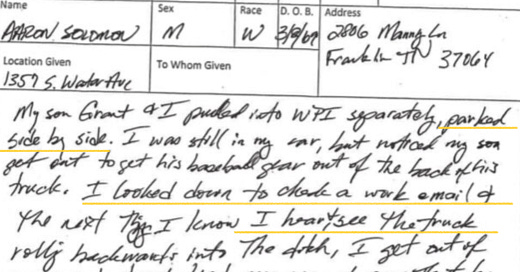 Name Sex Race D. O. B. Address
AARON SOLOMON M W 3/8/69 2806 Manng Ln
Location Given To Whom Given Franklin TN 37064
1357 S. Water Ave
My son Grant & I pulled into WPI separately, parked
side by side. I was still in my car, but noticed my son
get out to get his baseball gear out of the back of his
truck. I looked down to check a work email &
the next thing I know I hear/see the truck
rolling backwards into the ditch, I get out of